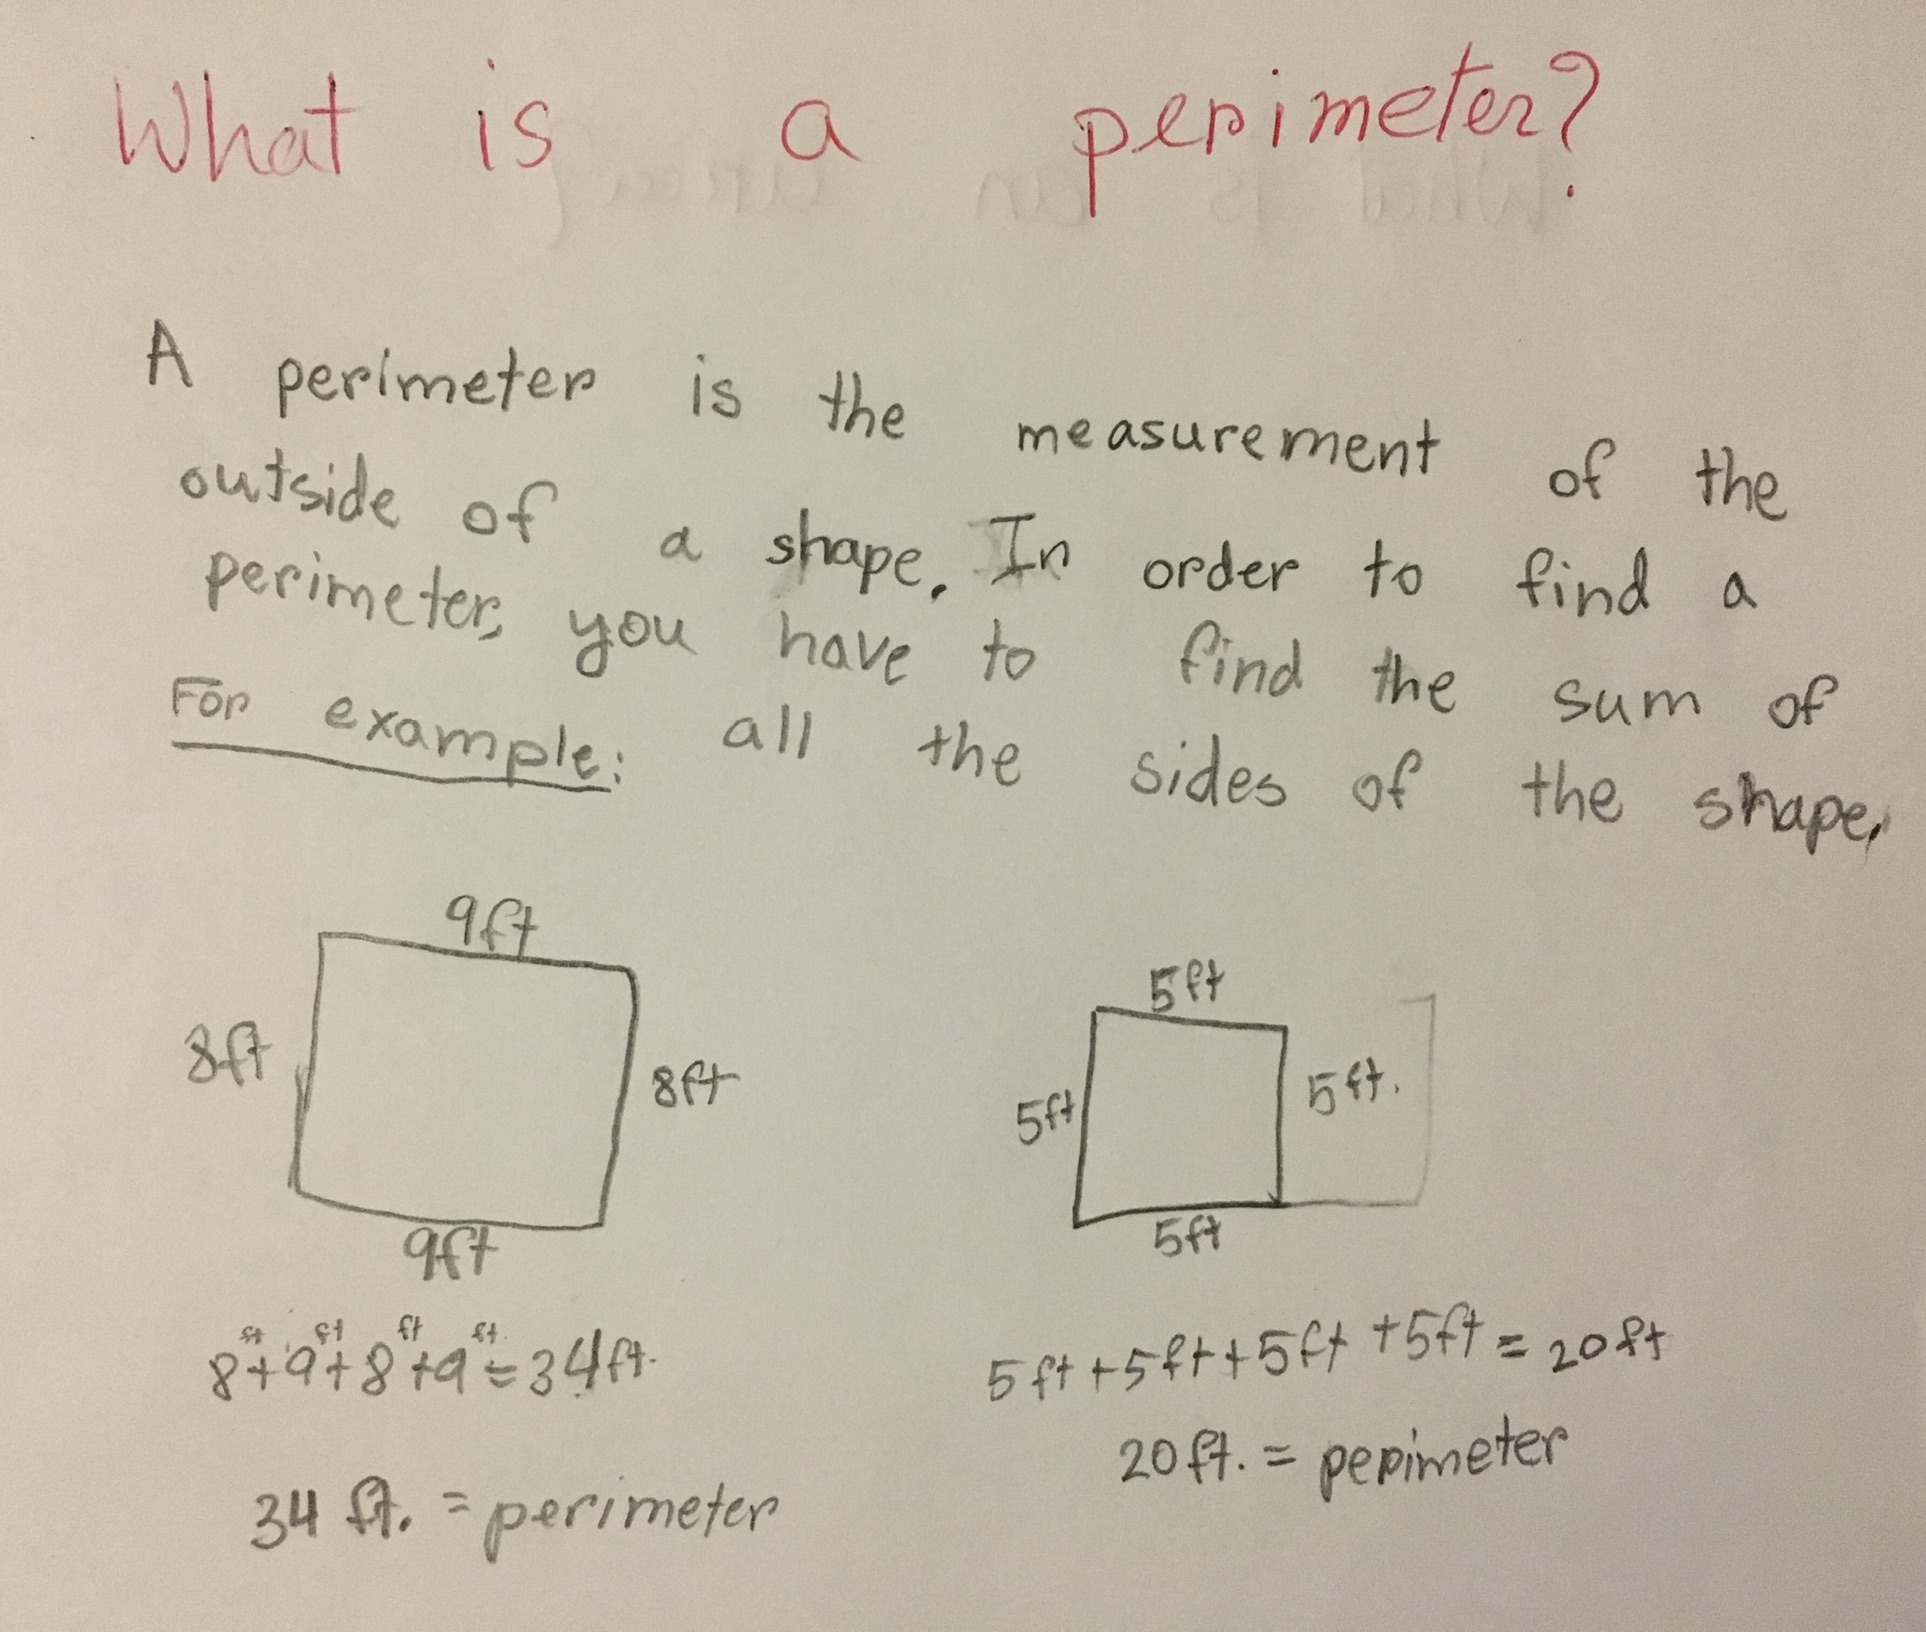 What is a perimeter?
A perimeter is the measurement of the
outside of a shape. In order to find a
perimeter, you have to find the sum of
all the sides of the shape.
For example:
9ft
8ft
8ft
9ft
8ft+9ft+8ft+9ft=34ft.
34 ft. = perimeter
5ft
5ft
5ft.
5ft
5ft+5ft+5ft+5ft=20ft
20ft. = perimeter